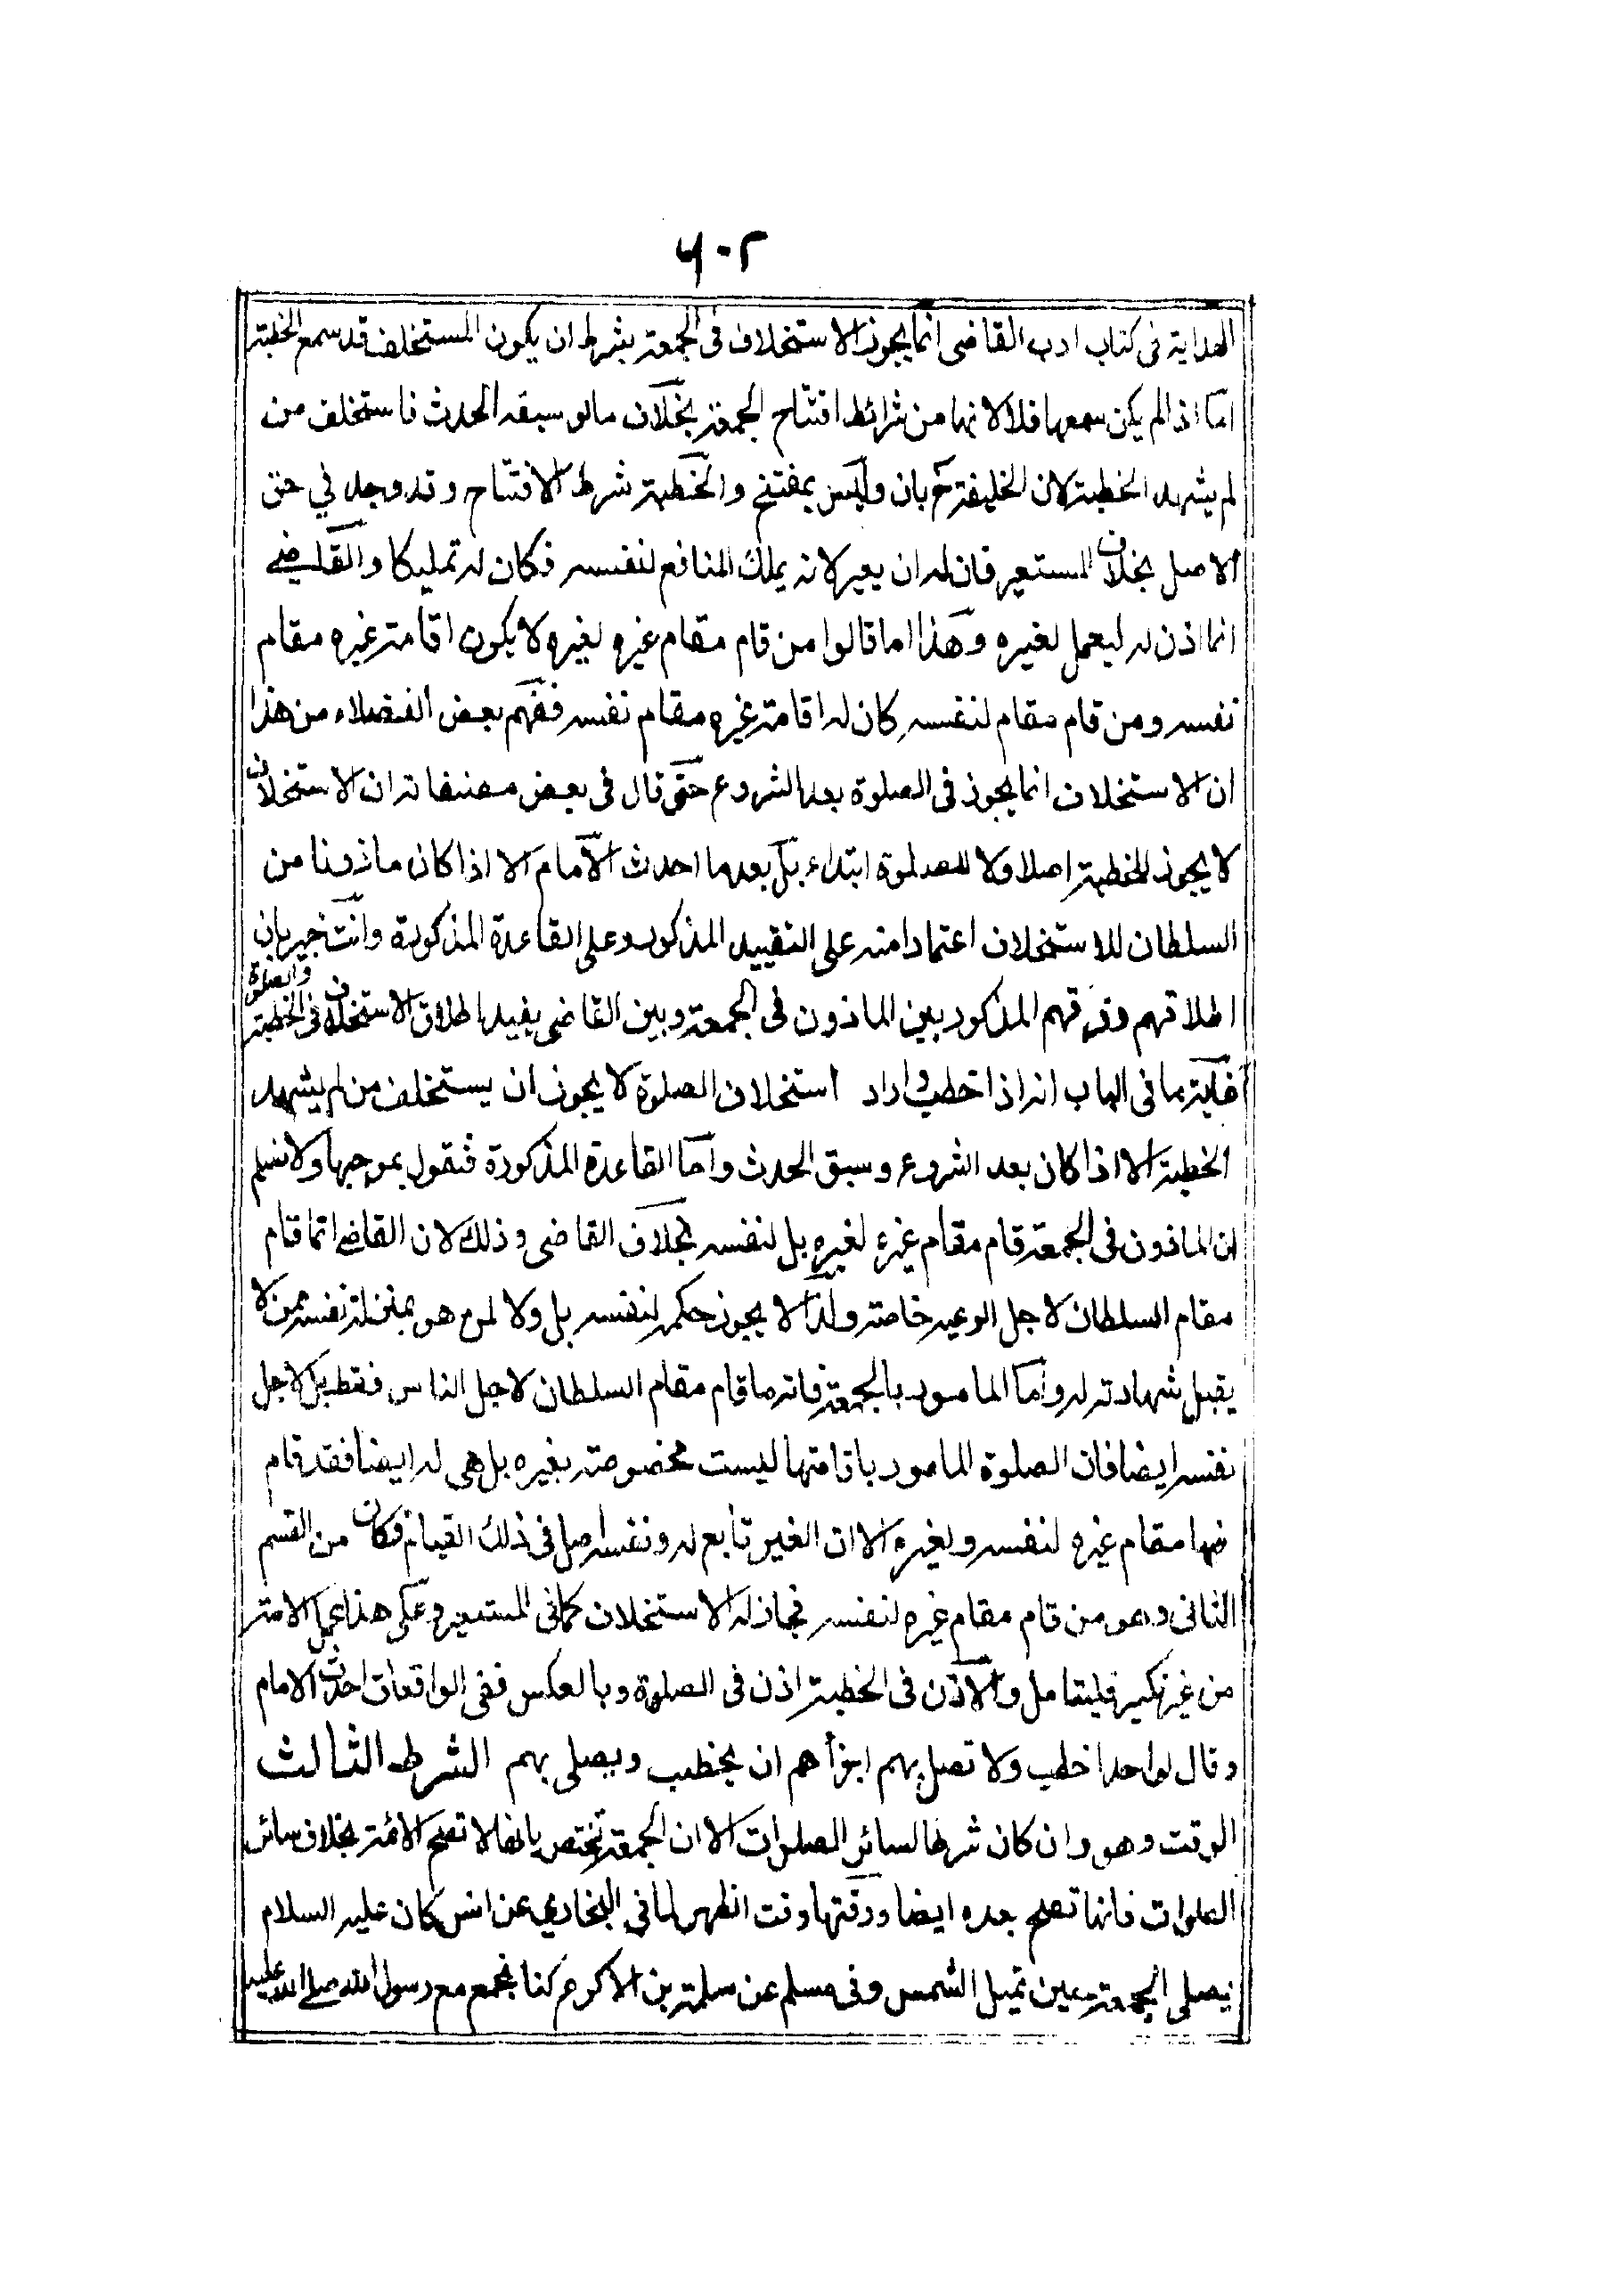 ٦٠٢
الهداية فى كتاب ادب القاضى انما يجوز الاستخلاف فى الجمعة بشرط ان يكون المستخلف قد سمع الخطبة
امّا اذا لم يكن سمعها فلا لانها من شرائط افتتاح الجمعة بخلاف ما لو سبقه الحدث فاستخلف من
لم يشهد الخطبة لان الخليفة ح بان وليس بمفتتح والخطبة شرط الافتتاح وقد وجد في حق
الاصل بخلاف المستعير فان له ان يعير لانه يملك المنافع لنفسه فكان له تمليكا والقاضي
انما اذن له ليعمل لغيره وهذا اما قالوا من قام مقام غيره لغيره لا يكون اقامة غيره مقام
نفسه ومن قام مقام لنفسه كان له اقامة غيره مقام نفسه ففهم بعض الفضلاء من هذا
ان الاستخلاف انما يجوز فى الصلوة بعد الشروع حتى قال فى بعض مصنفاته ان الاستخلاف
لا يجوز للخطبة اصلا ولا للصلوة ابتداء بل بعد ما احدث الامام الا اذا كان ماذونا من
السلطان للاستخلاف اعتمادا منه على التقييد المذكور وعلى القاعدة المذكورة وانت خبير بان
اطلاقهم وفرقهم المذكور بين الماذون فى الجمعة وبين القاضى يفيد اطلاق الاستخلاف فى الخطبة والصلوة
غاية ما فى الباب انه اذا خطب واراد استخلاف الصلوة لا يجوز ان يستخلف من لم يشهد
الخطبة الا اذا كان بعد الشروع وسبق الحدث وامّا القاعدة المذكورة فنقول بموجبها ولا نسلم
ان الماذون فى الجمعة قام مقام غيره لغيره بل لنفسه بخلاف القاضى وذلك لان القاضي انّما قام
مقام السلطان لاجل الوعية خاصة ولذا لا يجوز حكمه لنفسه بل ولا لمن هو بمنزلة نفسه ممن لا
يقبل شهادته له وامّا المامور بالجمعة فانه ما قام مقام السلطان لاجل الناس فقط بل لاجل
نفسه ايضا فان الصلوة المامور باقامتها ليست مخصوصة بغيره بل هى له ايضا فقد قام
فيها مقام غيره لنفسه ولغيره الا ان الغير تابع له ونفسه اصل فى ذلك القيام فكان من القسم
الثانى وهو من قام مقام غيره لنفسه فجاز له الاستخلاف كما فى المستعير وعلى هذا عمل الامة
من غير نكير فليتامل والاذن فى الخطبة اذن فى الصلوة وبالعكس ففى الواقعات احدث الامام
وقال لواحد اخطب ولا تصل بهم اجزأهم ان يخطب ويصلى بهم الشرط الثالث
الوقت وهو وان كان شرطا لسائر الصلوات الا ان الجمعة تختص بانها لا تصح الا فيه بخلاف سائر
الصلوات فانها تصلح بعده ايضا ووقتها وقت الظهر لما فى البخاري عن انس كان عليه السلام
يصلى الجمعة حين تميل الشمس وفى مسلم عن سلمة بن الاكوع كنا نجمع مع رسول الله صلى الله عليه